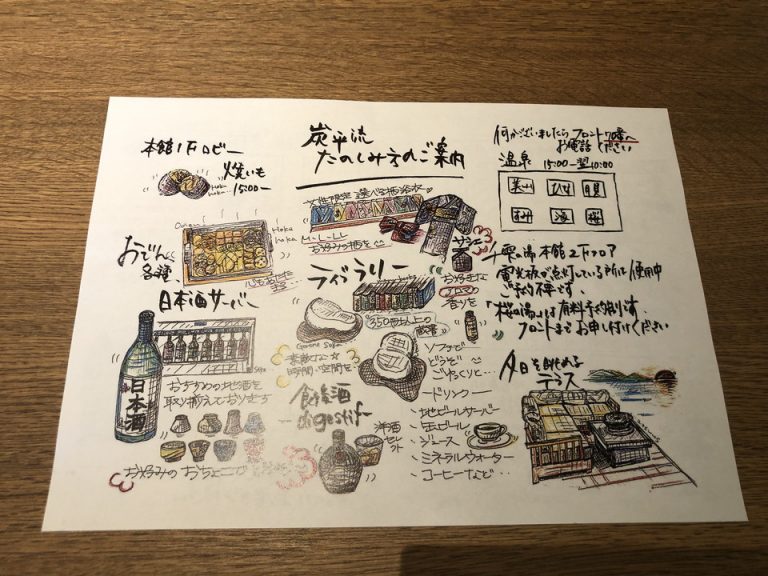 炭平流
たのしみ方のご案内
本館1Fロビー
焼いも
15:00〜
Hoka
hoka
おでん
各種
日本酒サーバー
日本酒
おすすめの地酒を
取り揃えております
お好みのおちょこで
女性限定 選べる柄浴衣
M・L・LL
お好みの柄を
ライブラリー
350冊以上の
素敵な
時間・空間を
食後酒
digestif
洋酒
セレクト
お好きな
アロマの
香りを
ソファで
どうぞ
ごゆっくりと…
ドリンク
地ビールサーバー
缶ビール
ジュース
ミネラルウォーター
コーヒーなど…
何かございましたら フロント70番へ
お電話ください
温泉 15:00-翌10:00
貸切
雫の湯 本館2Fフロア
電光板が点灯している所は使用中
ご予約不要です。
「桜の湯」は有料予約制です。
フロントまでお申し付けください
夕日を眺める
テラス